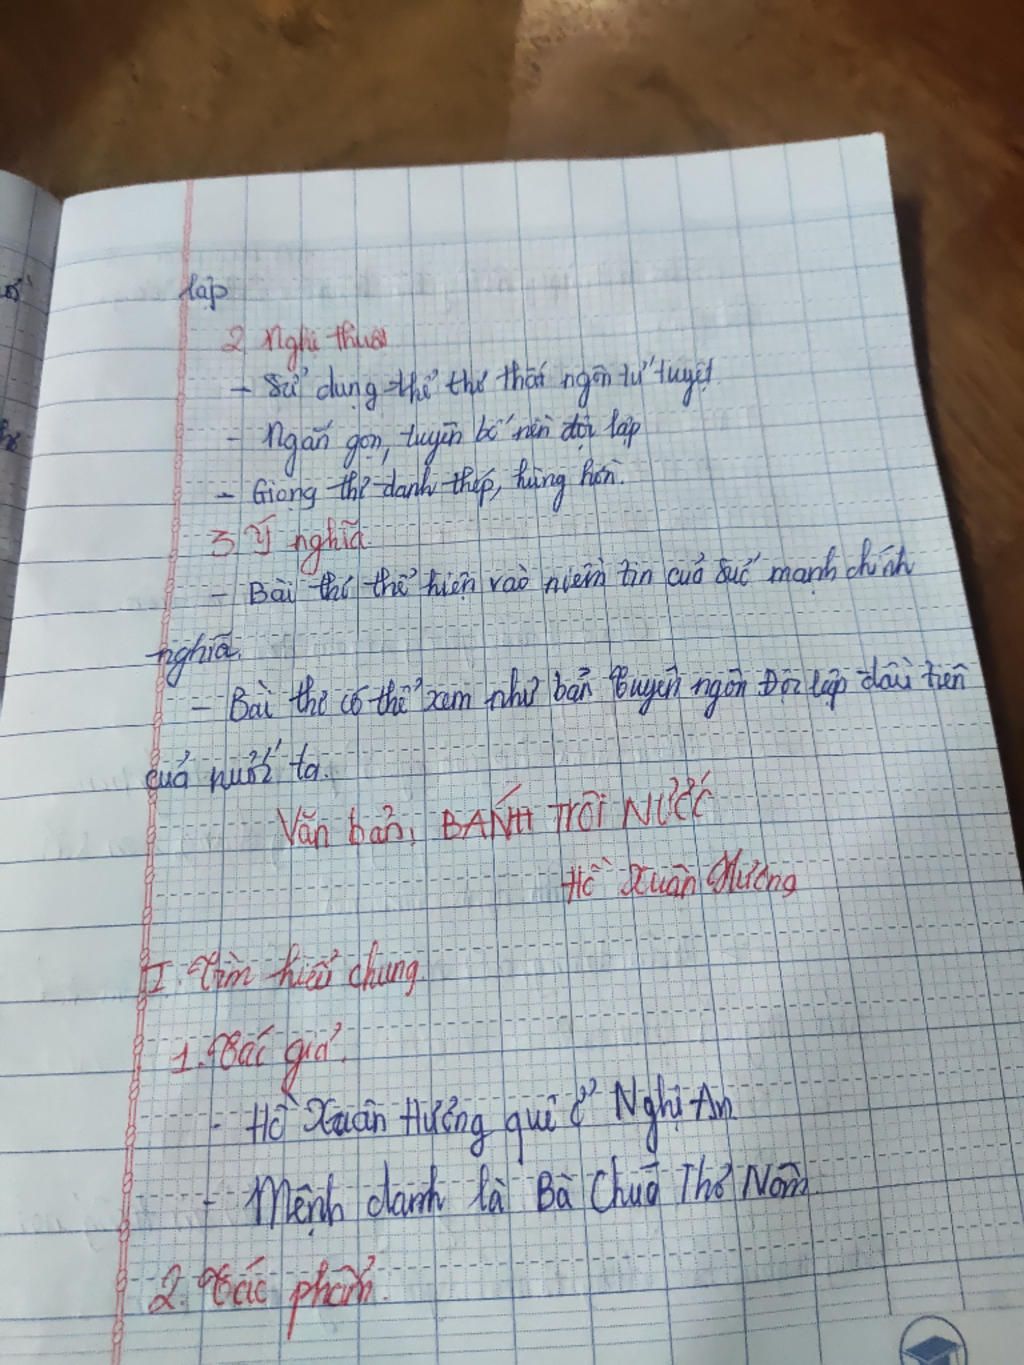 lập
2 Nghê thuật
- Sử dụng thể thơ thất ngôn tứ tuyệt.
- Ngắn gọn, tuyên bố nền độc lập
- Giọng thơ danh thép, hùng hồn.
3 Ý nghĩa
- Bài thơ thể hiện vào niềm tin của sức mạnh chính
nghĩa.
- Bài thơ có thể xem như bản Tuyên ngôn Độc lập đầu tiên
của nước ta.
Văn bản: BÁNH TRÔI NƯỚC
Hồ Xuân Hương
I. Tìm hiểu chung.
1. Tác giả.
- Hồ Xuân Hương quê ở Nghị An
- Mệnh danh là Bà Chúa Thơ Nôm.
2. Tác phẩm.